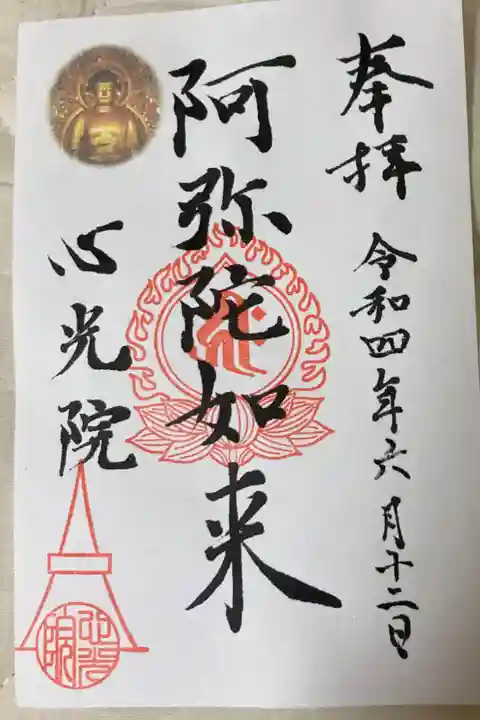 奉拝 令和四年六月十二日
阿弥陀如来
心光院
心光院